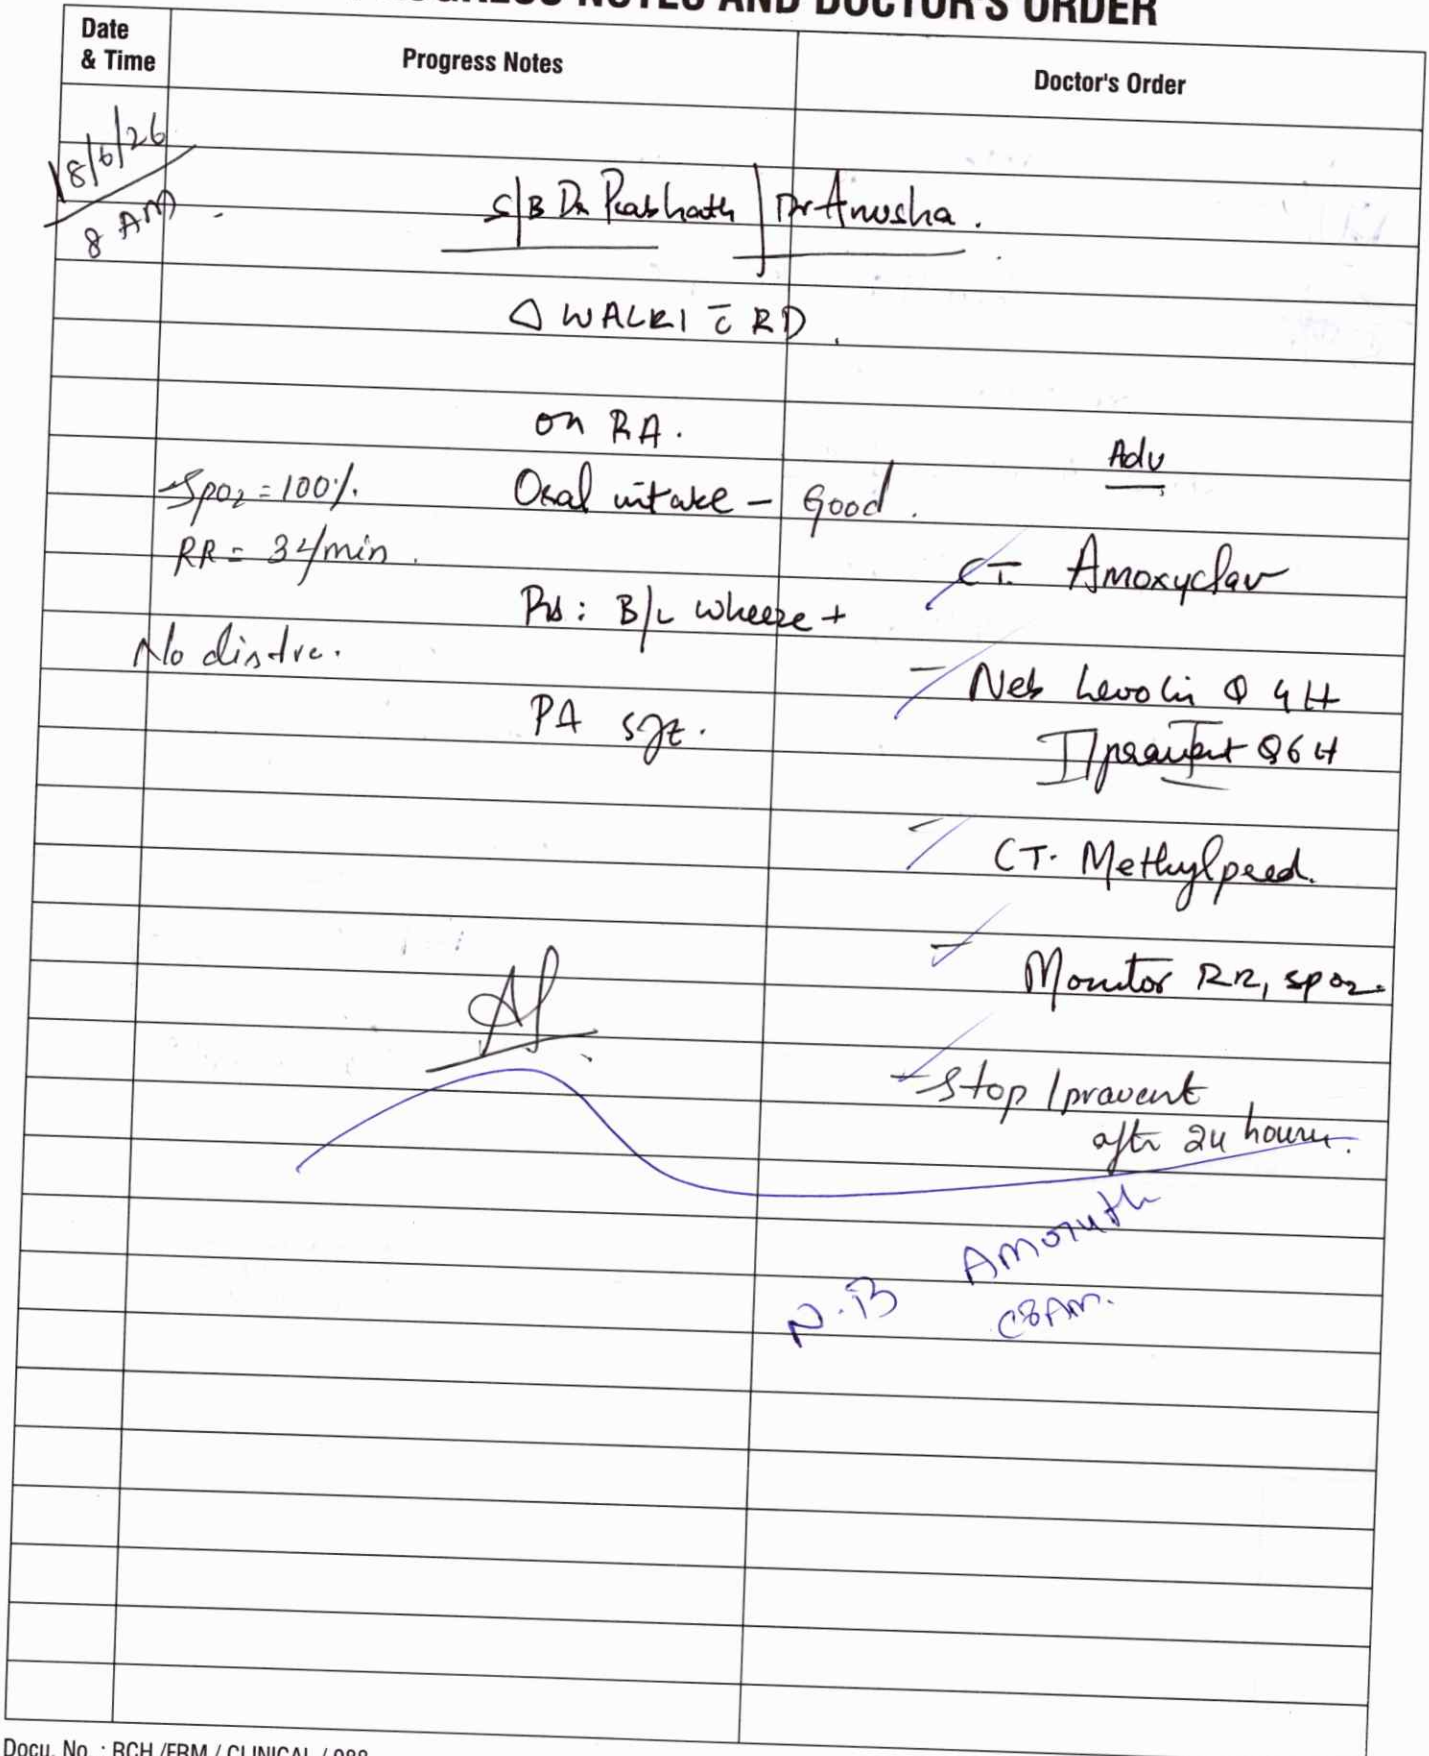 PROGRESS NOTES AND DOCTOR'S ORDER
Date & Time
Progress Notes
Doctor's Order
18/6/26
8 AM
S/B Dr Prabhath / Dr Anusha.
Δ WALRI c̄ RD.
on RA.
Adv
Spo2 = 100%.
Oral intake - Good.
RR = 34/min.
CT. Amoxyclav
Rs: B/L wheeze +
No distre.
- Neb Levolin Q 4H
PA soft.
Ipravent Q6H
- CT. Methylpred.
- Monitor RR, spo2.
- Stop Ipravent
after 24 hours.
N.B
C8AM.
Docu. No. : RCH /FRM / CLINICAL / 088